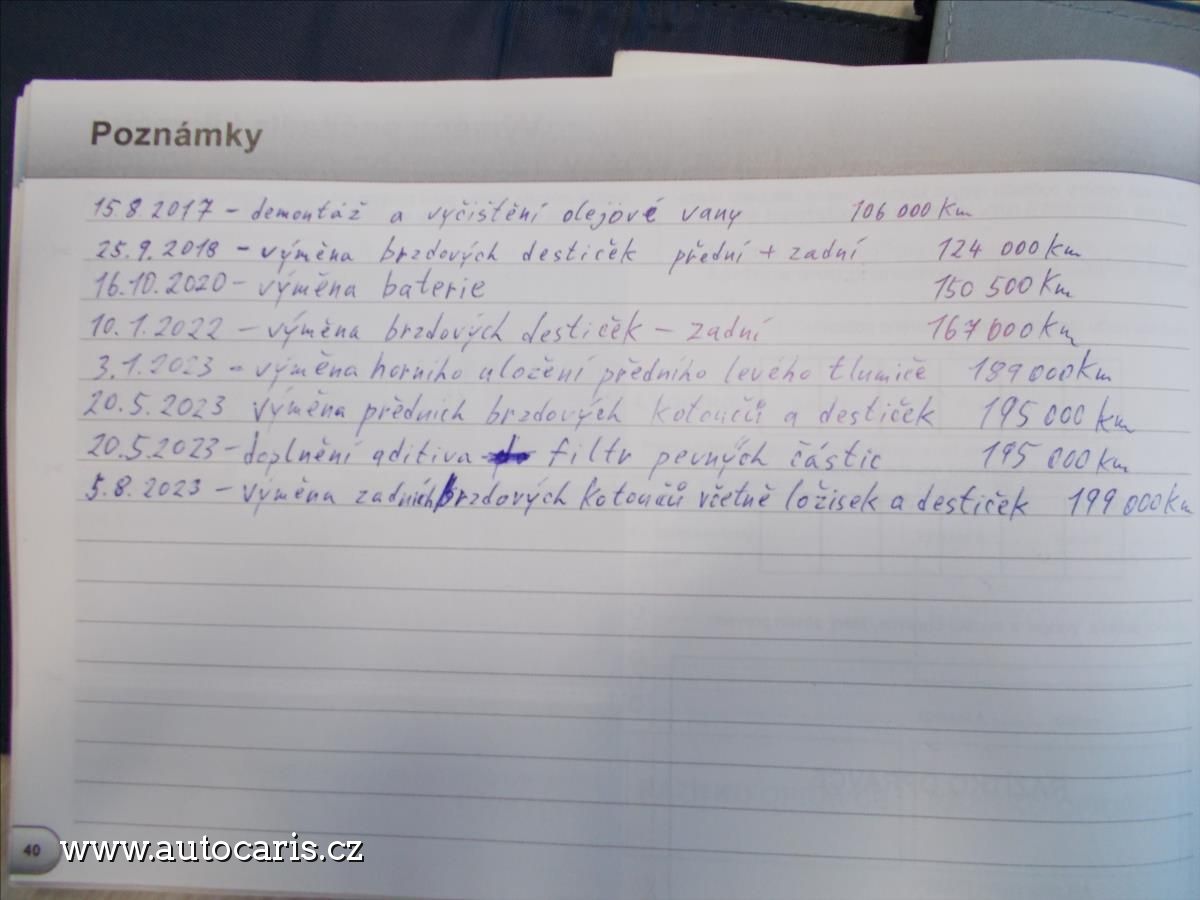 Poznámky
15.8.2017 - demontáž a vyčištění olejové vany 106 000 Km
25.9.2018 - výměna brzdových destiček přední + zadní 124 000 Km
16.10.2020 - výměna baterie 150 500 Km
10.1.2022 - výměna brzdových destiček - zadní 167 000 Km
3.1.2023 - výměna horního uložení předního levého tlumiče 189 000 Km
20.5.2023 výměna předních brzdových kotoučů a destiček 195 000 Km
20.5.2023 - doplnění aditiva filtr pevných částic 195 000 Km
5.8.2023 - výměna zadních brzdových kotoučů včetně ložisek a destiček 199 000 Km
40
www.autocaris.cz